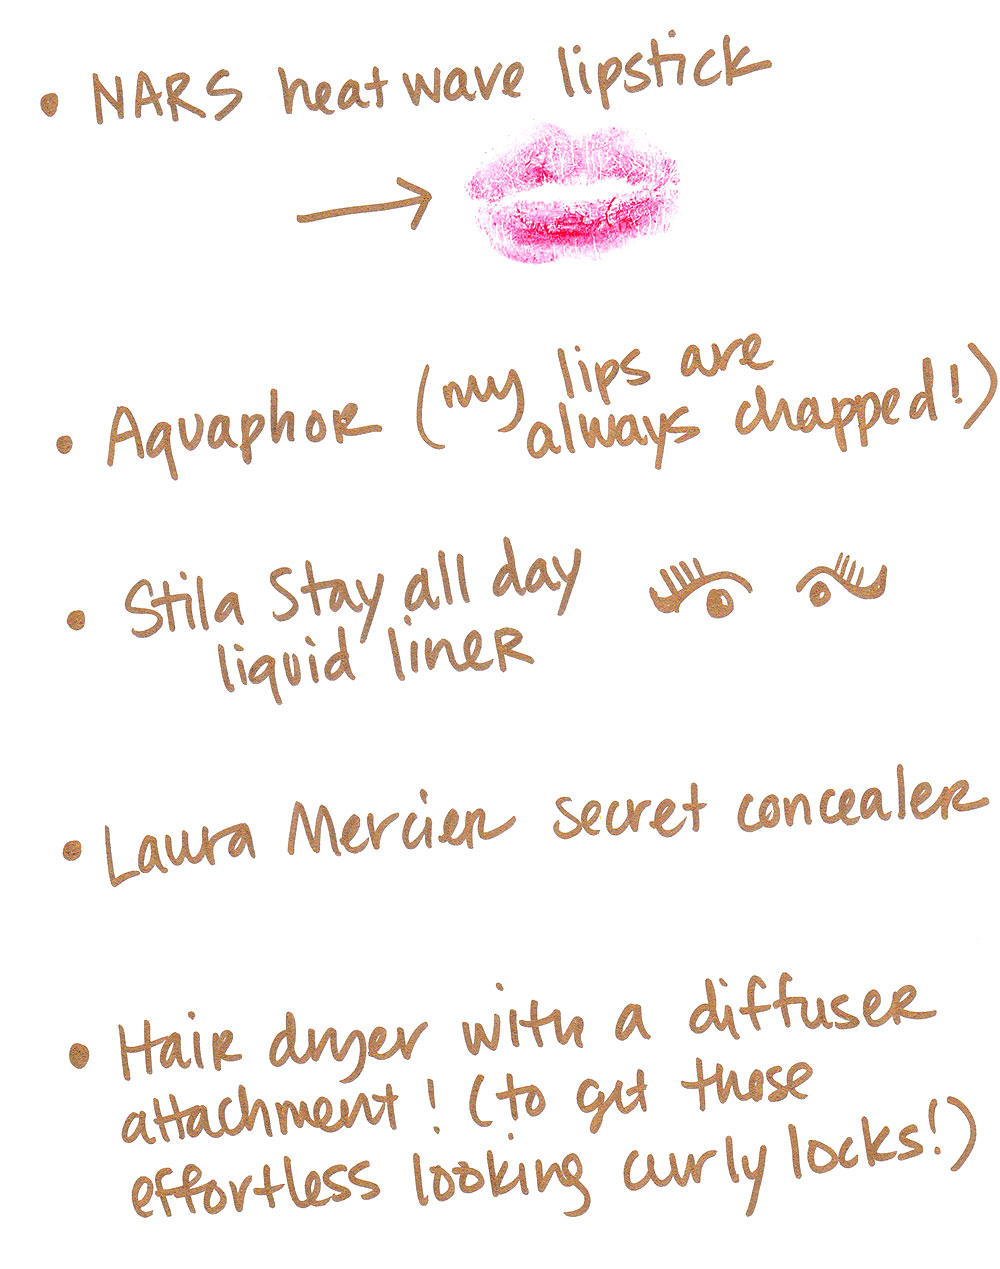 • NARS heat wave lipstick
• Aquaphor (my lips are
always chapped!)
• Stila Stay all day
liquid liner
• Laura Mercier secret concealer
• Hair dryer with a diffuser
attachment! (to get those
effortless looking curly locks!)